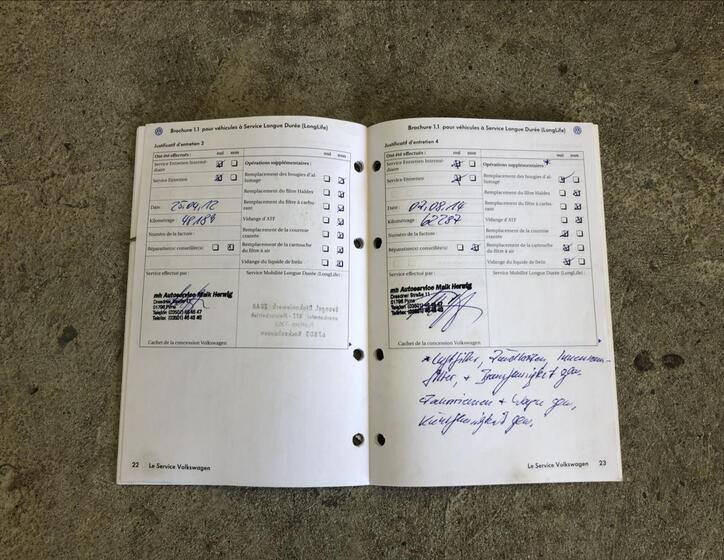 Brochure 1.1 pour véhicules à Service Longue Durée (LongLife)
Justificatif d'entretien 3
Ont été effectués : oui non
Service Entretien Intermé-
diaire
Service Entretien
Date : 25.04.12
Kilométrage :
Numéro de la facture :
Réparation(s) conseillée(s)
Service effectué par :
mh Autoservice Maik Herwig
Dresdner Straße 11
01796 Pirna
Cachet de la concession Volkswagen
Opérations supplémentaires :
oui non
Remplacement des bougies d'al-
lumage
Remplacement du filtre Haldex
Remplacement du filtre à carbu-
rant
Vidange d'ATF
Remplacement de la courroie
crantée
Remplacement de la cartouche
du filtre à air
Vidange du liquide de frein
Service Mobilité Longue Durée (LongLife) :
22 Le Service Volkswagen
Brochure 1.1 pour véhicules à Service Longue Durée (LongLife)
Justificatif d'entretien 4
Ont été effectués : oui non
Service Entretien Intermé-
diaire
Service Entretien
Date : 07.08.14
Kilométrage : 62287
Numéro de la facture :
Réparation(s) conseillée(s)
Service effectué par :
mh Autoservice Maik Herwig
Dresdner Straße 11
01796 Pirna
Cachet de la concession Volkswagen
Opérations supplémentaires : *
oui non
Remplacement des bougies d'al-
lumage
Remplacement du filtre Haldex
Remplacement du filtre à carbu-
rant
Vidange d'ATF
Remplacement de la courroie
crantée
Remplacement de la cartouche
du filtre à air
Vidange du liquide de frein
Service Mobilité Longue Durée (LongLife) :
* Luftfilter, Zündkerzen, Innenraum-
filter, + Bremsflüssigkeit gew.
Zahnriemen + Wapu gew.
Kühlflüssigkeit gew.
Le Service Volkswagen 23